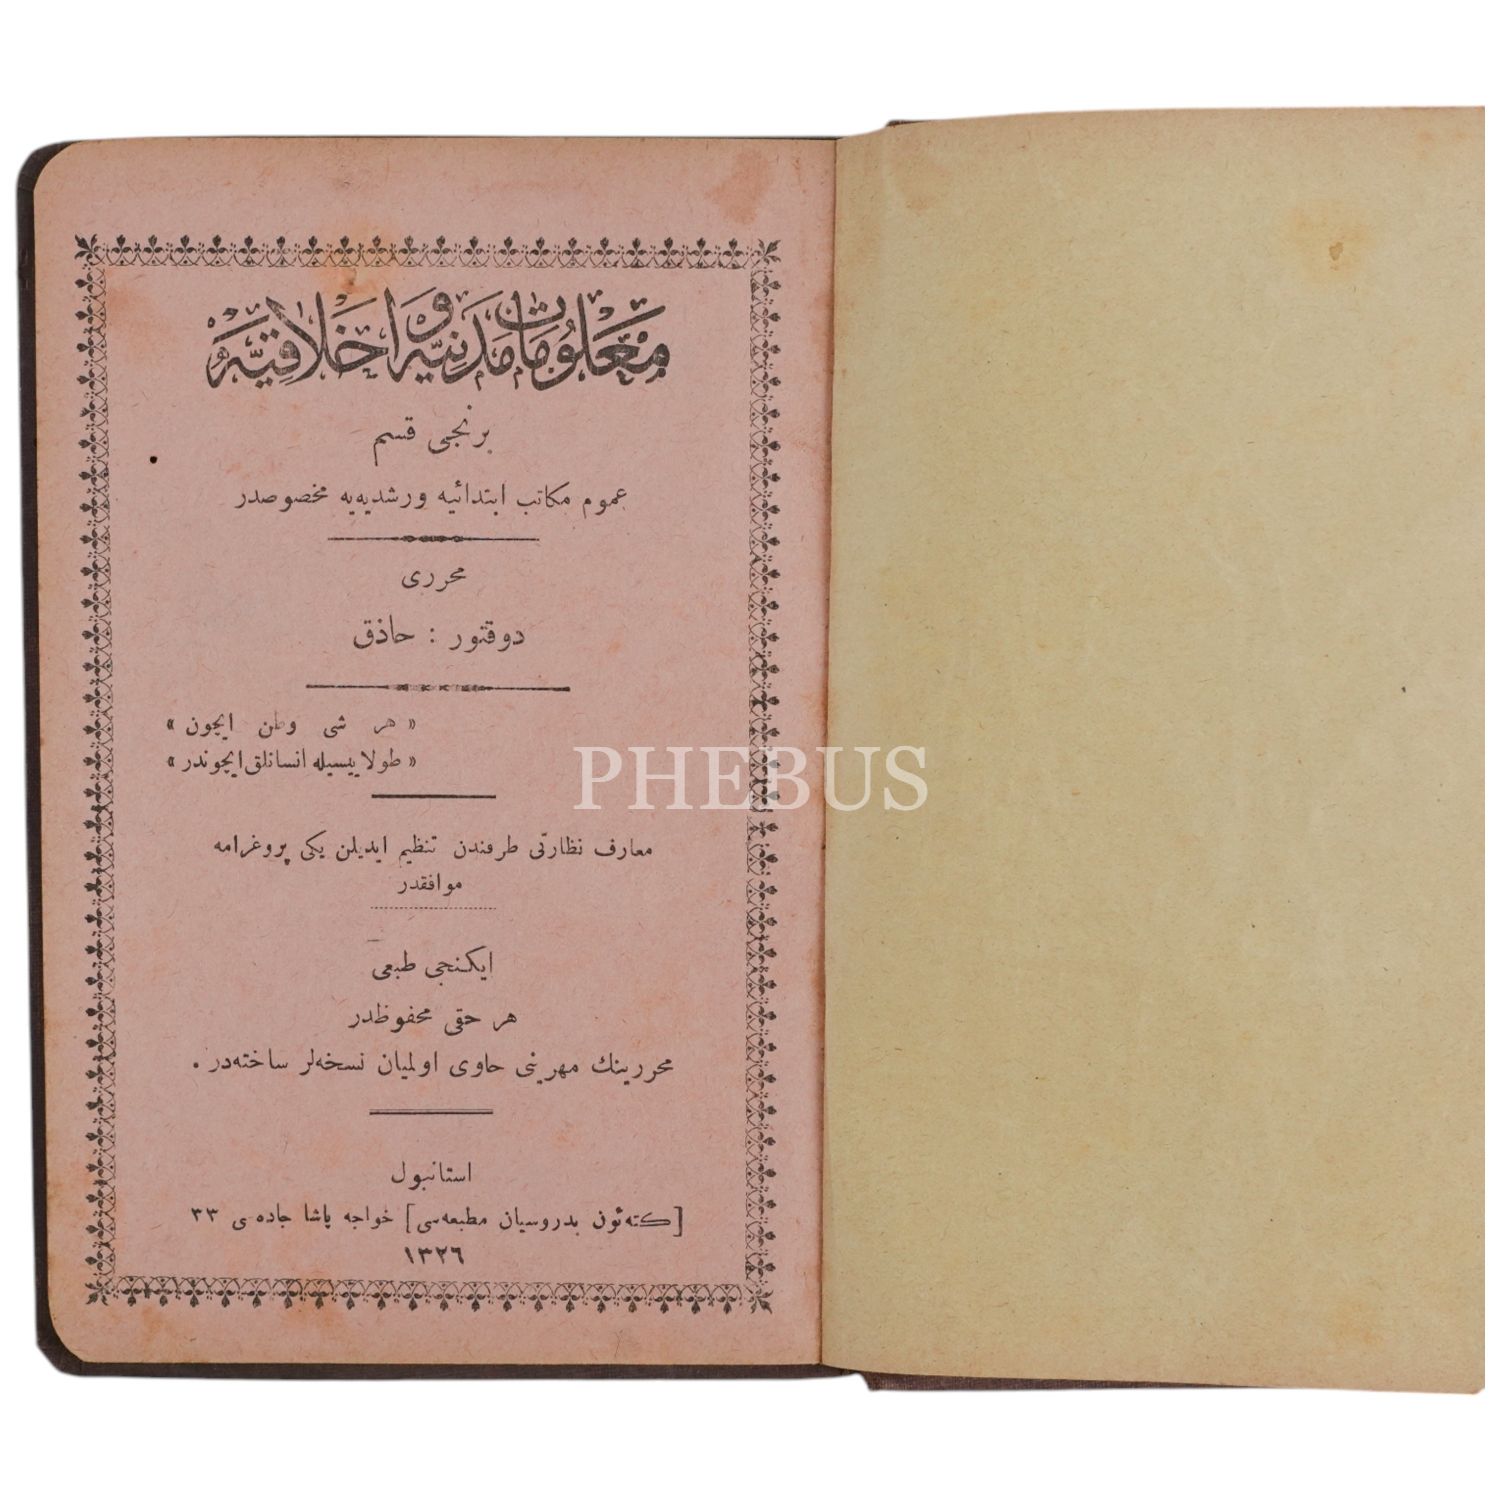 معلومات مدنیه و اخلاقیه
برنجی قسم
عموم مکاتب ابتدائیه ورشدیه‌یه مخصوصدر
محرری
دوقتور : حاذق
« هر شی وطن ایچون »
« طولاییسیله انسانلق ایچوندر »
معارف نظارتی طرفندن تنظیم ایدیلن یکی پروغرامه
موافقدر
ایکنجی طبعی
هر حقی محفوظدر
محررینك مهرینی حاوی اولمیان نسخه‌لر ساخته‌در .
استانبول
[کته‌ئون بدروسیان مطبعه‌سی] خواجه پاشا جاده‌سی ٣٣
١٣٢٦
PHEBUS